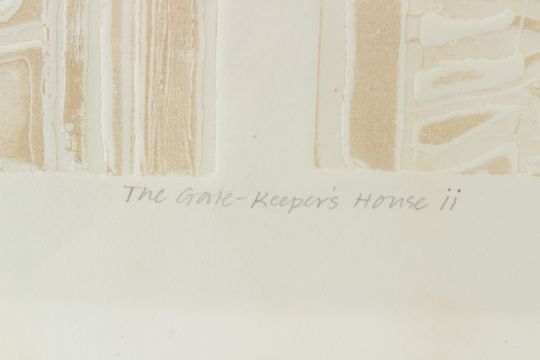 The Gate-Keeper's House ii